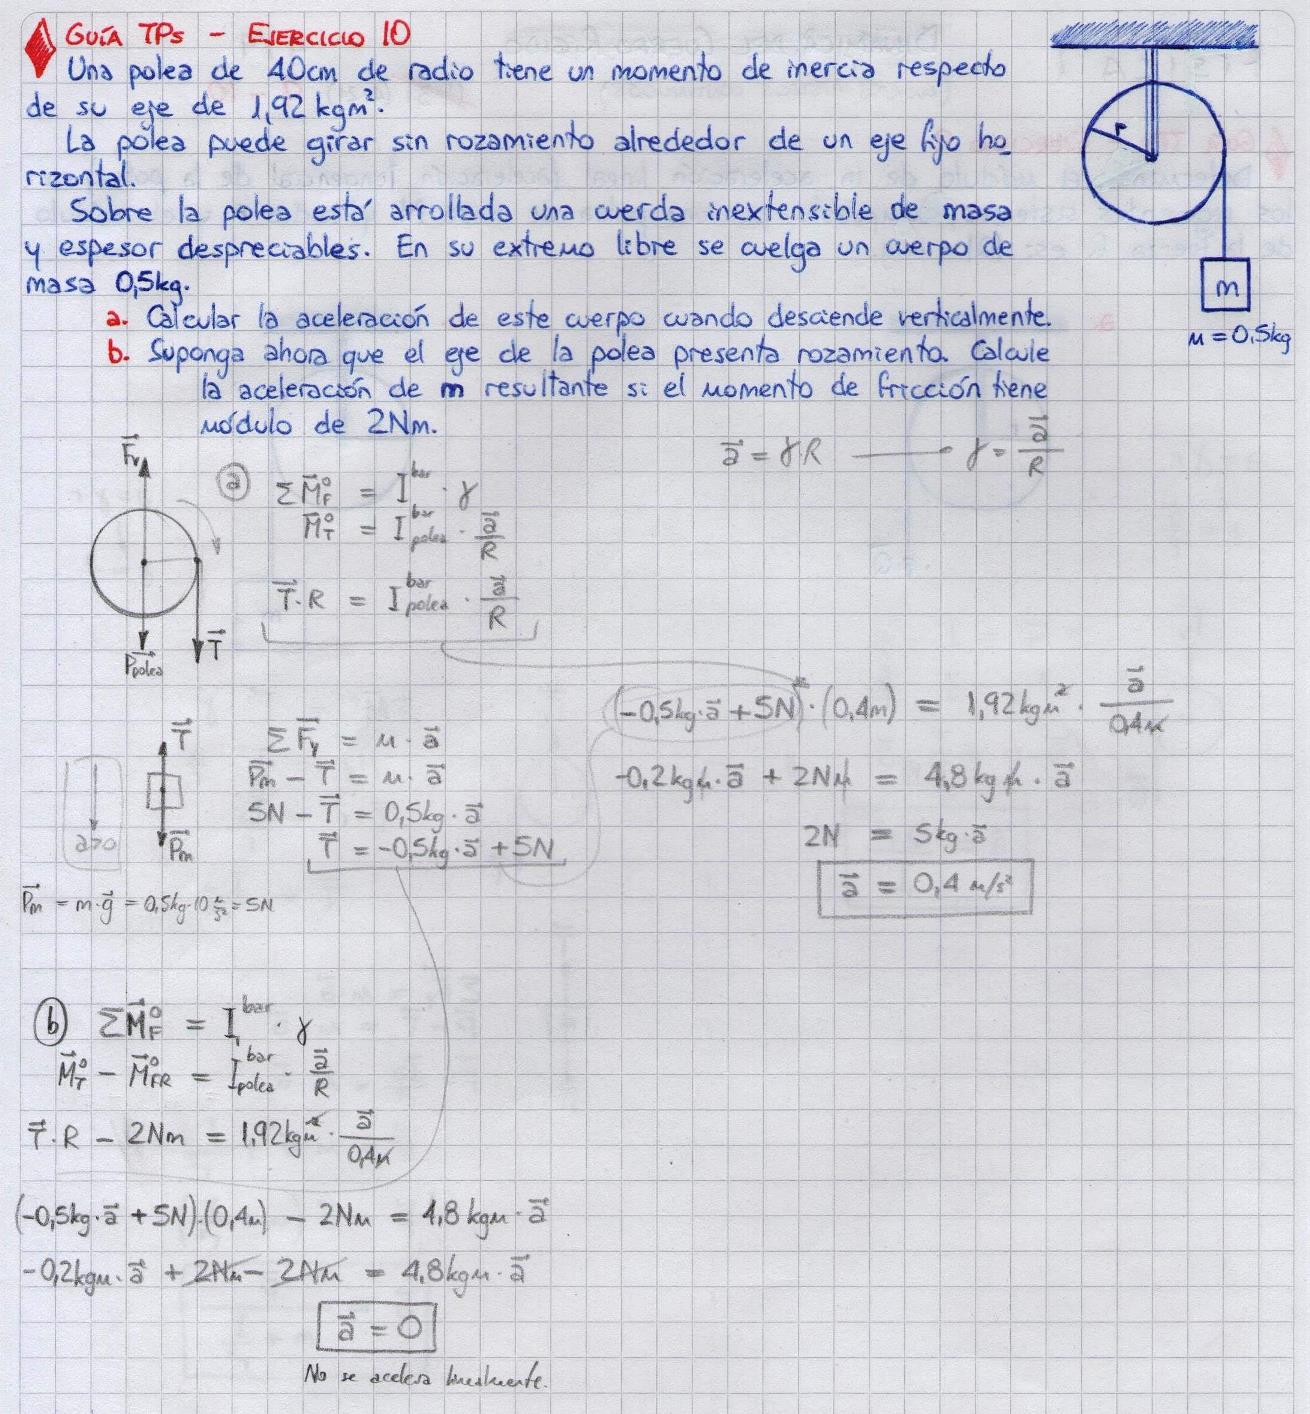 GUÍA TPs - EJERCICIO 10
Una polea de 40cm de radio tiene un momento de inercia respecto
de su eje de 1,92 kgm².
La polea puede girar sin rozamiento alrededor de un eje fijo ho_
rizontal.
Sobre la polea está arrollada una cuerda inextensible de masa
y espesor despreciables. En su extremo libre se cuelga un cuerpo de
masa 0,5kg.
a. Calcular la aceleración de este cuerpo cuando desciende verticalmente.
b. Suponga ahora que el eje de la polea presenta rozamiento. Calcule
la aceleración de m resultante si el momento de fricción tiene
módulo de 2Nm.
r
m
m = 0,5kg
F⃗v
P⃗polea
T⃗
a⃗ = γ.R —— γ = a⃗/R
a ΣM⃗°F = I bar · γ
M⃗°T = I bar polea · a⃗/R
T⃗·R = I bar polea · a⃗/R
T⃗
P⃗m
a>0
ΣF⃗y = m · a⃗
P⃗m - T⃗ = m · a⃗
5N - T⃗ = 0,5kg · a⃗
T⃗ = -0,5kg · a⃗ + 5N
P⃗m = m·g⃗ = 0,5kg·10 m/s² = 5N
(-0,5kg·a⃗ + 5N)·(0,4m) = 1,92kgm² · a⃗/0,4m
-0,2kgm·a⃗ + 2Nm = 4,8kgm · a⃗
2N = 5kg·a⃗
a⃗ = 0,4 m/s²
b ΣM⃗°F = I bar · γ
M⃗°T - M⃗°FR = I bar polea · a⃗/R
T⃗·R - 2Nm = 1,92kgm² · a⃗/0,4m
(-0,5kg·a⃗ + 5N).(0,4m) - 2Nm = 4,8kgm · a⃗
-0,2kgm·a⃗ + 2Nm - 2Nm = 4,8kgm·a⃗
a⃗ = 0
No se acelera linealmente.